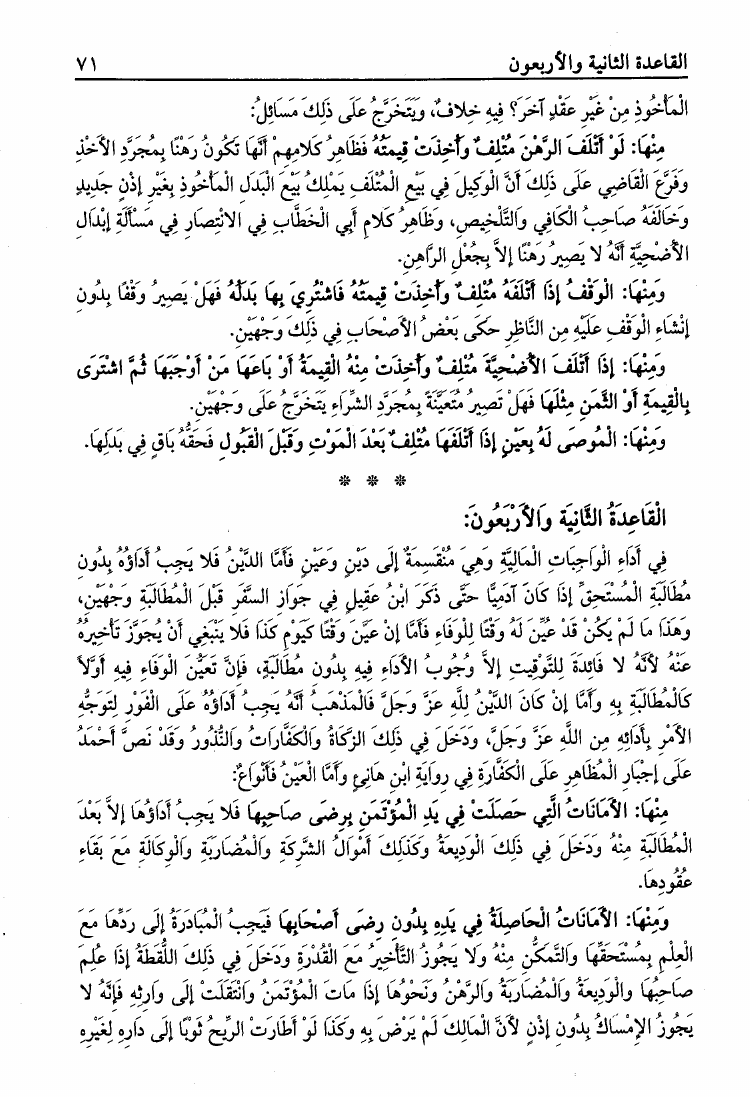 القاعدة الثانية والأربعون ٧١
الْمَأْخُوذِ مِنْ غَيْرِ عَقْدٍ آخَرَ؟ فِيهِ خِلافٌ، وَيَتَخَرَّجُ عَلَى ذَلِكَ مَسَائِلُ:
مِنْهَا: لَوْ أَتْلَفَ الرَّهْنَ مُتْلِفٌ وَأُخِذَتْ قِيمَتُهُ فَظَاهِرُ كَلَامِهِمْ أَنَّهَا تَكُونُ رَهْنًا بِمُجَرَّدِ الأَخْذِ
وَفَرَّعَ الْقَاضِي عَلَى ذَلِكَ أَنَّ الْوَكِيلَ فِي بَيْعِ الْمُتْلَفِ يَمْلِكُ بَيْعَ الْبَدَلِ الْمَأْخُوذِ بِغَيْرِ إِذْنٍ جَدِيدٍ
وَخَالَفَهُ صَاحِبُ الْكَافِي وَالتَّلْخِيصِ، وَظَاهِرُ كَلَامِ أَبِي الْخَطَّابِ فِي الانْتِصَارِ فِي مَسْأَلَةِ إِبْدَالِ
الأُضْحِيَّةِ أَنَّهُ لا يَصِيرُ رَهْنًا إِلاَّ بِجَعْلِ الرَّاهِنِ.
وَمِنْهَا: الْوَقْفُ إِذَا أَتْلَفَهُ مُتْلِفٌ وَأُخِذَتْ قِيمَتُهُ فَاشْتُرِيَ بِهَا بَدَلُهُ فَهَلْ يَصِيرُ وَقْفًا بِدُونِ
إِنْشَاءِ الْوَقْفِ عَلَيْهِ مِنَ النَّاظِرِ حَكَى بَعْضُ الأَصْحَابِ فِي ذَلِكَ وَجْهَيْنِ.
وَمِنْهَا: إِذَا أَتْلَفَ الأُضْحِيَّةَ مُتْلِفٌ وَأُخِذَتْ مِنْهُ الْقِيمَةُ أَوْ بَاعَهَا مَنْ أَوْجَبَهَا ثُمَّ اشْتَرَى
بِالْقِيمَةِ أَوْ الثَّمَنِ مِثْلَهَا فَهَلْ تَصِيرُ مُتَعَيِّنَةً بِمُجَرَّدِ الشِّرَاءِ يَتَخَرَّجُ عَلَى وَجْهَيْنِ.
وَمِنْهَا: الْمُوصَى لَهُ بِعَيْنٍ إِذَا أَتْلَفَهَا مُتْلِفٌ بَعْدَ الْمَوْتِ وَقَبْلَ الْقَبُولِ فَحَقُّهُ بَاقٍ فِي بَدَلِهَا.
* * *
الْقَاعِدَةُ الثَّانِيَةُ وَالأَرْبَعُونَ:
فِي أَدَاءِ الْوَاجِبَاتِ الْمَالِيَّةِ وَهِيَ مُنْقَسِمَةٌ إِلَى دَيْنٍ وَعَيْنٍ فَأَمَّا الدَّيْنُ فَلا يَجِبُ أَدَاؤُهُ بِدُونِ
مُطَالَبَةِ الْمُسْتَحِقِّ إِذَا كَانَ آدَمِيًّا حَتَّى ذَكَرَ ابْنُ عَقِيلٍ فِي جَوَازِ السَّفَرِ قَبْلَ الْمُطَالَبَةِ وَجْهَيْنِ،
وَهَذَا مَا لَمْ يَكُنْ قَدْ عُيِّنَ لَهُ وَقْتًا لِلْوَفَاءِ فَأَمَّا إِنْ عَيَّنَ وَقْتًا كَيَوْمِ كَذَا فَلا يَنْبَغِي أَنْ يُجَوَّزَ تَأْخِيرُهُ
عَنْهُ لأَنَّهُ لا فَائِدَةَ لِلتَّوْقِيتِ إِلاَّ وُجُوبُ الأَدَاءِ فِيهِ بِدُونِ مُطَالَبَةٍ، فَإِنَّ تَعَيُّنَ الْوَفَاءِ فِيهِ أَوَّلاً
كَالْمُطَالَبَةِ بِهِ وَأَمَّا إِنْ كَانَ الدَّيْنُ لِلَّهِ عَزَّ وَجَلَّ فَالْمَذْهَبُ أَنَّهُ يَجِبُ أَدَاؤُهُ عَلَى الْفَوْرِ لِتَوَجُّهِ
الأَمْرِ بِأَدَائِهِ مِنَ اللَّهِ عَزَّ وَجَلَّ، وَدَخَلَ فِي ذَلِكَ الزَّكَاةُ وَالْكَفَّارَاتُ وَالنُّذُورُ وَقَدْ نَصَّ أَحْمَدُ
عَلَى إِجْبَارِ الْمُظَاهِرِ عَلَى الْكَفَّارَةِ فِي رِوَايَةِ ابْنِ هَانِئٍ وَأَمَّا الْعَيْنُ فَأَنْوَاعٌ:
مِنْهَا: الأَمَانَاتُ الَّتِي حَصَلَتْ فِي يَدِ الْمُؤْتَمَنِ بِرِضَى صَاحِبِهَا فَلا يَجِبُ أَدَاؤُهَا إِلاَّ بَعْدَ
الْمُطَالَبَةِ مِنْهُ وَدَخَلَ فِي ذَلِكَ الْوَدِيعَةُ وَكَذَلِكَ أَمْوَالُ الشَّرِكَةِ وَالْمُضَارَبَةِ وَالْوَكَالَةِ مَعَ بَقَاءِ
عُقُودِهَا.
وَمِنْهَا: الأَمَانَاتُ الْحَاصِلَةُ فِي يَدِهِ بِدُونِ رِضَى أَصْحَابِهَا فَيَجِبُ الْمُبَادَرَةُ إِلَى رَدِّهَا مَعَ
الْعِلْمِ بِمُسْتَحِقِّهَا وَالتَّمَكُّنِ مِنْهُ وَلا يَجُوزُ التَّأْخِيرُ مَعَ الْقُدْرَةِ وَدَخَلَ فِي ذَلِكَ اللُّقَطَةُ إِذَا عُلِمَ
صَاحِبُهَا وَالْوَدِيعَةُ وَالْمُضَارَبَةُ وَالرَّهْنُ وَنَحْوُهَا إِذَا مَاتَ الْمُؤْتَمَنُ وَانْتَقَلَتْ إِلَى وَارِثِهِ فَإِنَّهُ لا
يَجُوزُ الإِمْسَاكُ بِدُونِ إِذْنٍ لأَنَّ الْمَالِكَ لَمْ يَرْضَ بِهِ وَكَذَا لَوْ أَطَارَتْ الرِّيحُ ثَوْبًا إِلَى دَارِهِ لِغَيْرِهِ